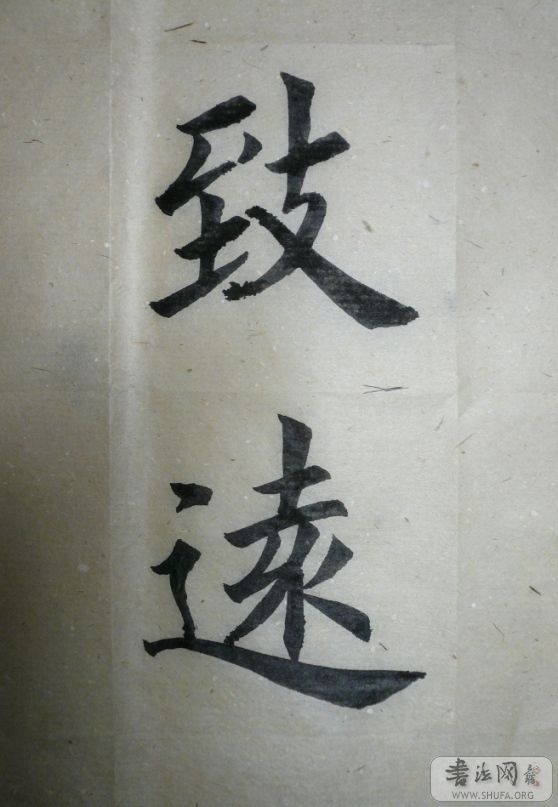 致遠
书法网
WWW.SHUFA.ORG